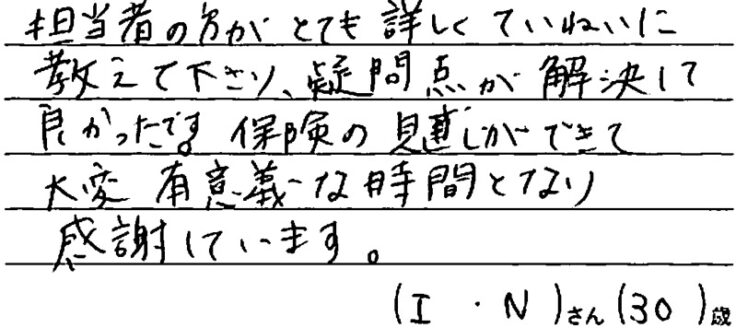 担当者の方がとても詳しくていねいに
教えて下さり、疑問点が解決して
良かったです 保険の見直しができて
大変有意義な時間となり
感謝しています。
(I ・N)さん(30)歳